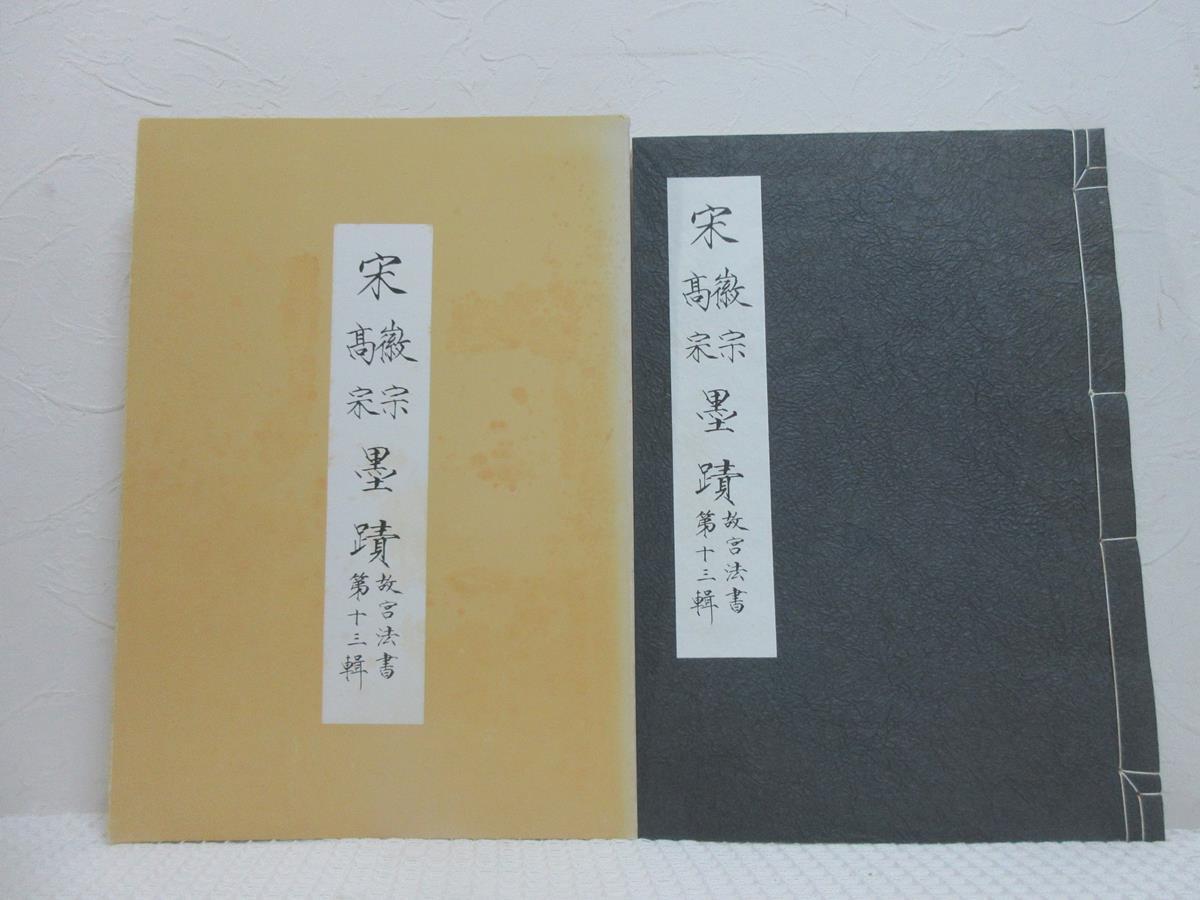 宋徽宗高宗墨蹟
故宮法書
第十三輯
宋徽宗高宗墨蹟
故宮法書
第十三輯